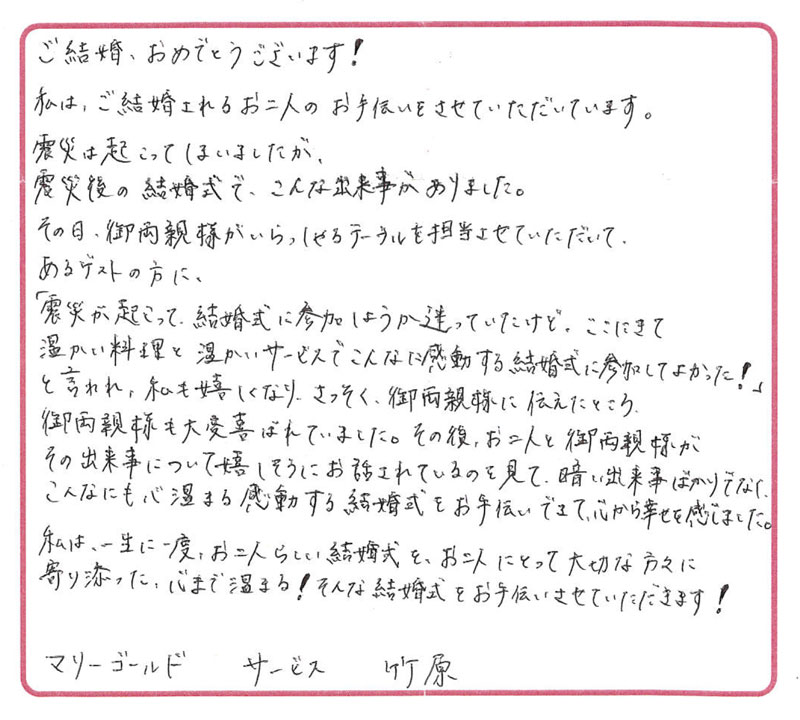 ご結婚、おめでとうございます!
私は、ご結婚されるお二人のお手伝いをさせていただいています。
震災は起こってしまいましたが、
震災後の結婚式で、こんな出来事がありました。
その日、御両親様がいらっしゃるテーブルを担当させていただいて、
あるゲストの方に、
「震災が起こって、結婚式に参加しようか迷っていたけど、ここにきて
温かい料理と温かいサービスでこんなに感動する結婚式に参加してよかった!」
と言われ、私も嬉しくなり、さっそく、御両親様に伝えたところ、
御両親様も大変喜ばれていました。その後、お二人と御両親様が
その出来事について嬉しそうにお話されているのを見て、暗い出来事ばかりでなく、
こんなにも心温まる感動する結婚式をお手伝いできて、心から幸せを感じました。
私は、一生に一度、お二人らしい結婚式を、お二人にとって大切な方々に
寄り添った、心まで温まる!そんな結婚式をお手伝いさせていただきます!
マリーゴールド サービス 竹原